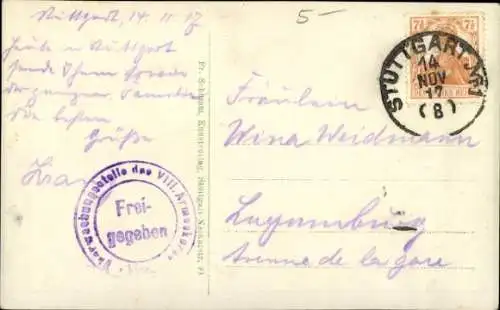 Stuttgart, 14. 11. 17
5-
Heute in Stuttgart
sende Ihnen
der ganzen Familie
die besten
Grüße
Überwachungsstelle des VIII. Armeekorps
Frei-
gegeben
7½ 7½
STUTTGART
14
NOV
17
(B)
Fräulein
Nina Weidmann
Luxemburg
Avenue de la gare